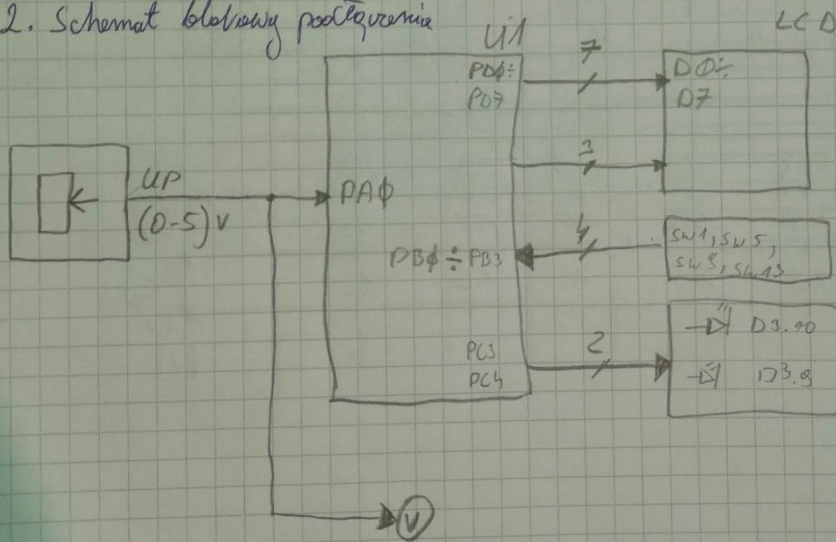 2. Schemat blokowy podłączenia
U1
LCD
PDΦ÷
PD7
7
DΦ÷
D7
3
UP
(0-5)V
PAΦ
4
PBΦ÷PB3
SW1, SW5,
SW9, SW13
PC3
PC4
2
D3.10
D3.9
V